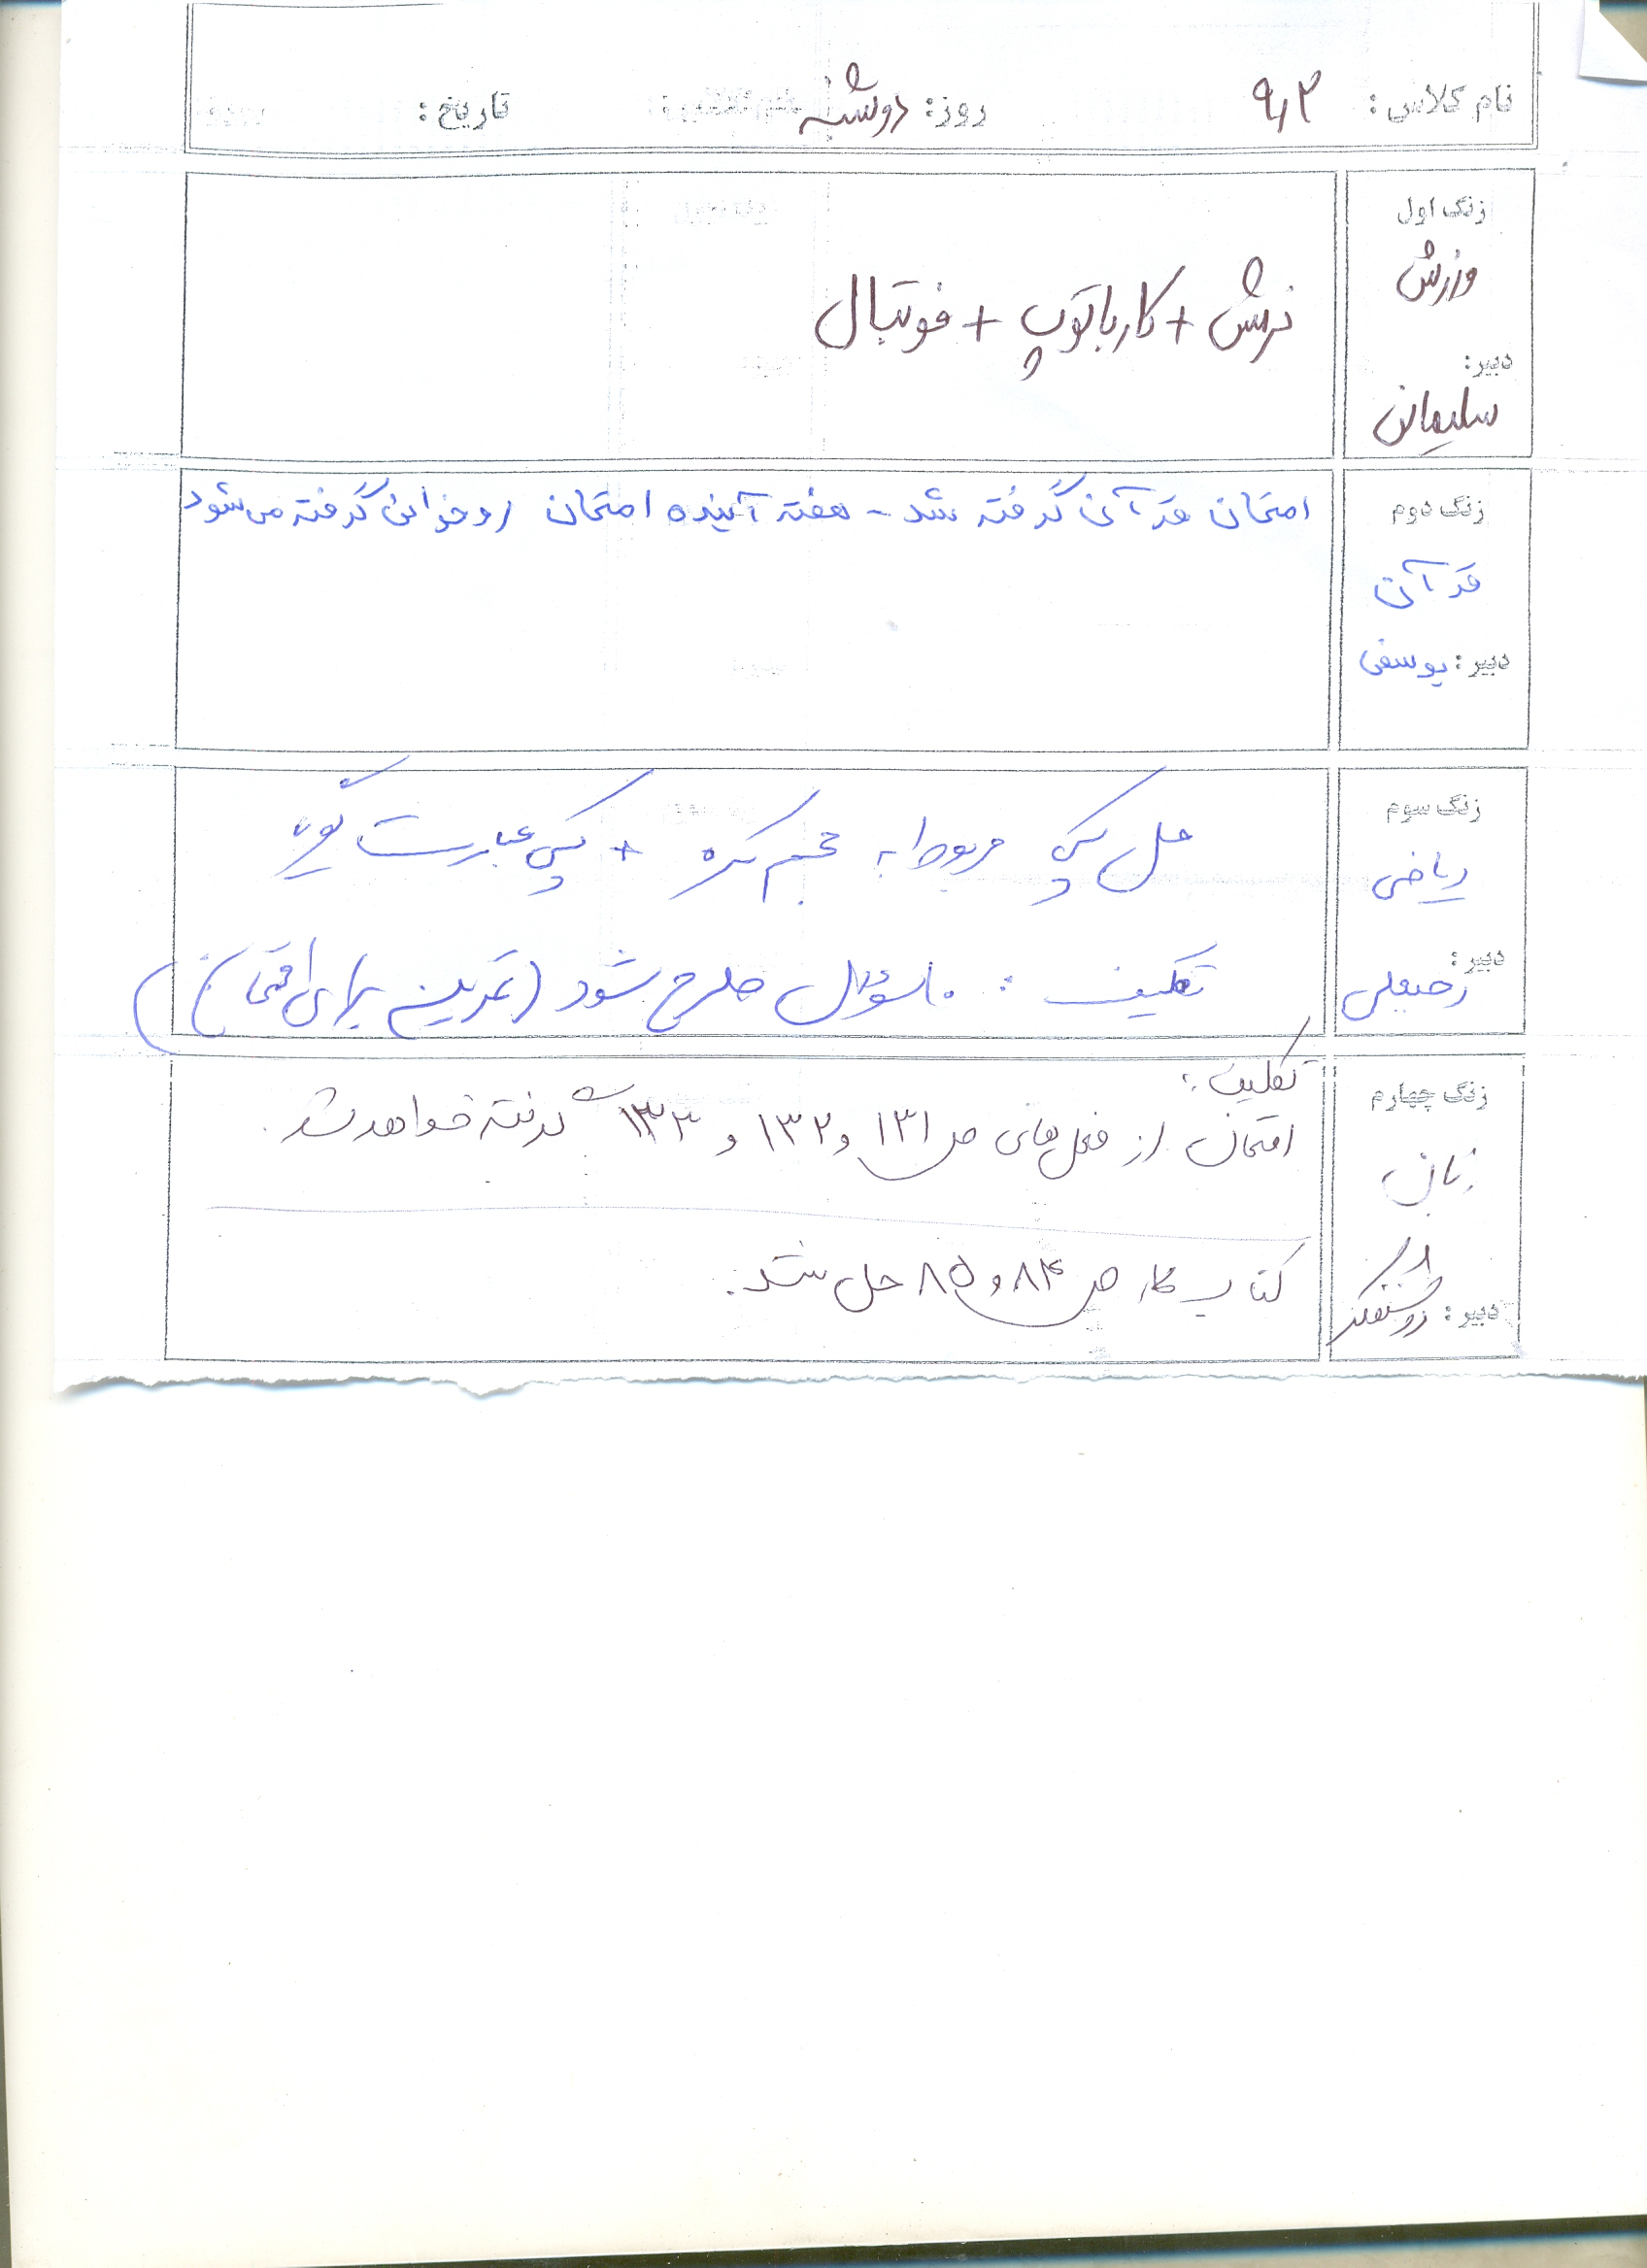 نام کلاس: ۹٫۳ روز: دوشنبه تاریخ:
زنگ اول
ورزش
نرمش + کار با توپ + فوتبال
دبیر:
سلیمانی
زنگ دوم
امتحان قرآن گرفته شد - هفته آینده امتحان روخوانی گرفته می‌شود
قرآن
دبیر: یوسفی
زنگ سوم
ریاضی
حل پلی کپی مربوط به حجم کره + پلی کپی عبارت گویا
دبیر:
رجبعلی
تکلیف: ۱۰ سؤال طرح شود (تمرین برای امتحان)
زنگ چهارم
زبان
تکلیف:
امتحان از فعل‌های ص ۱۳۱ و ۱۳۲ و ۱۳۳ گرفته خواهد شد.
کتاب کار ص ۸۴ و ۸۵ حل شد.
دبیر: روشنفکر